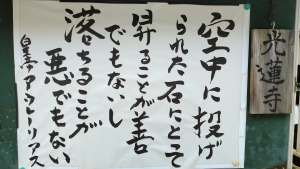 光蓮寺
空中に投げ
られた石にとって
昇ることが善
でもないし
落ちることが
悪でもない
アウレリアス